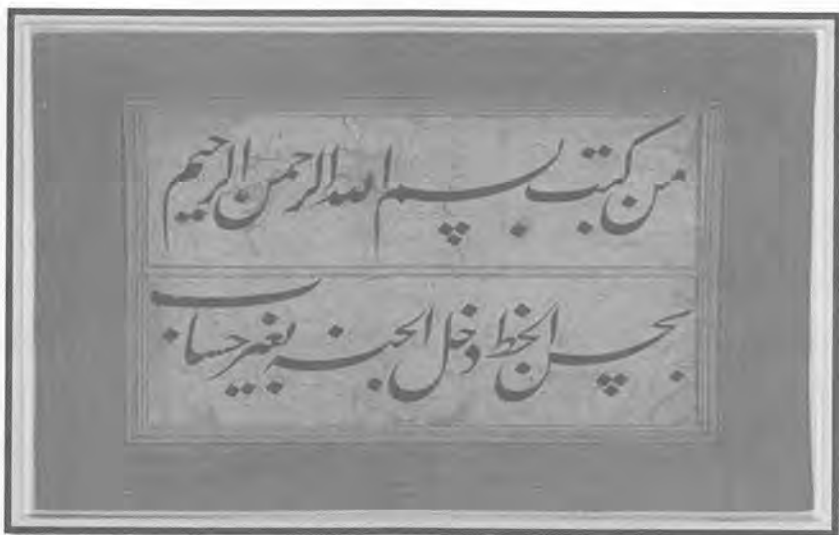 من كتب بسم الله الرحمن الرحيم
بحسن الخط دخل الجنه بغير حساب